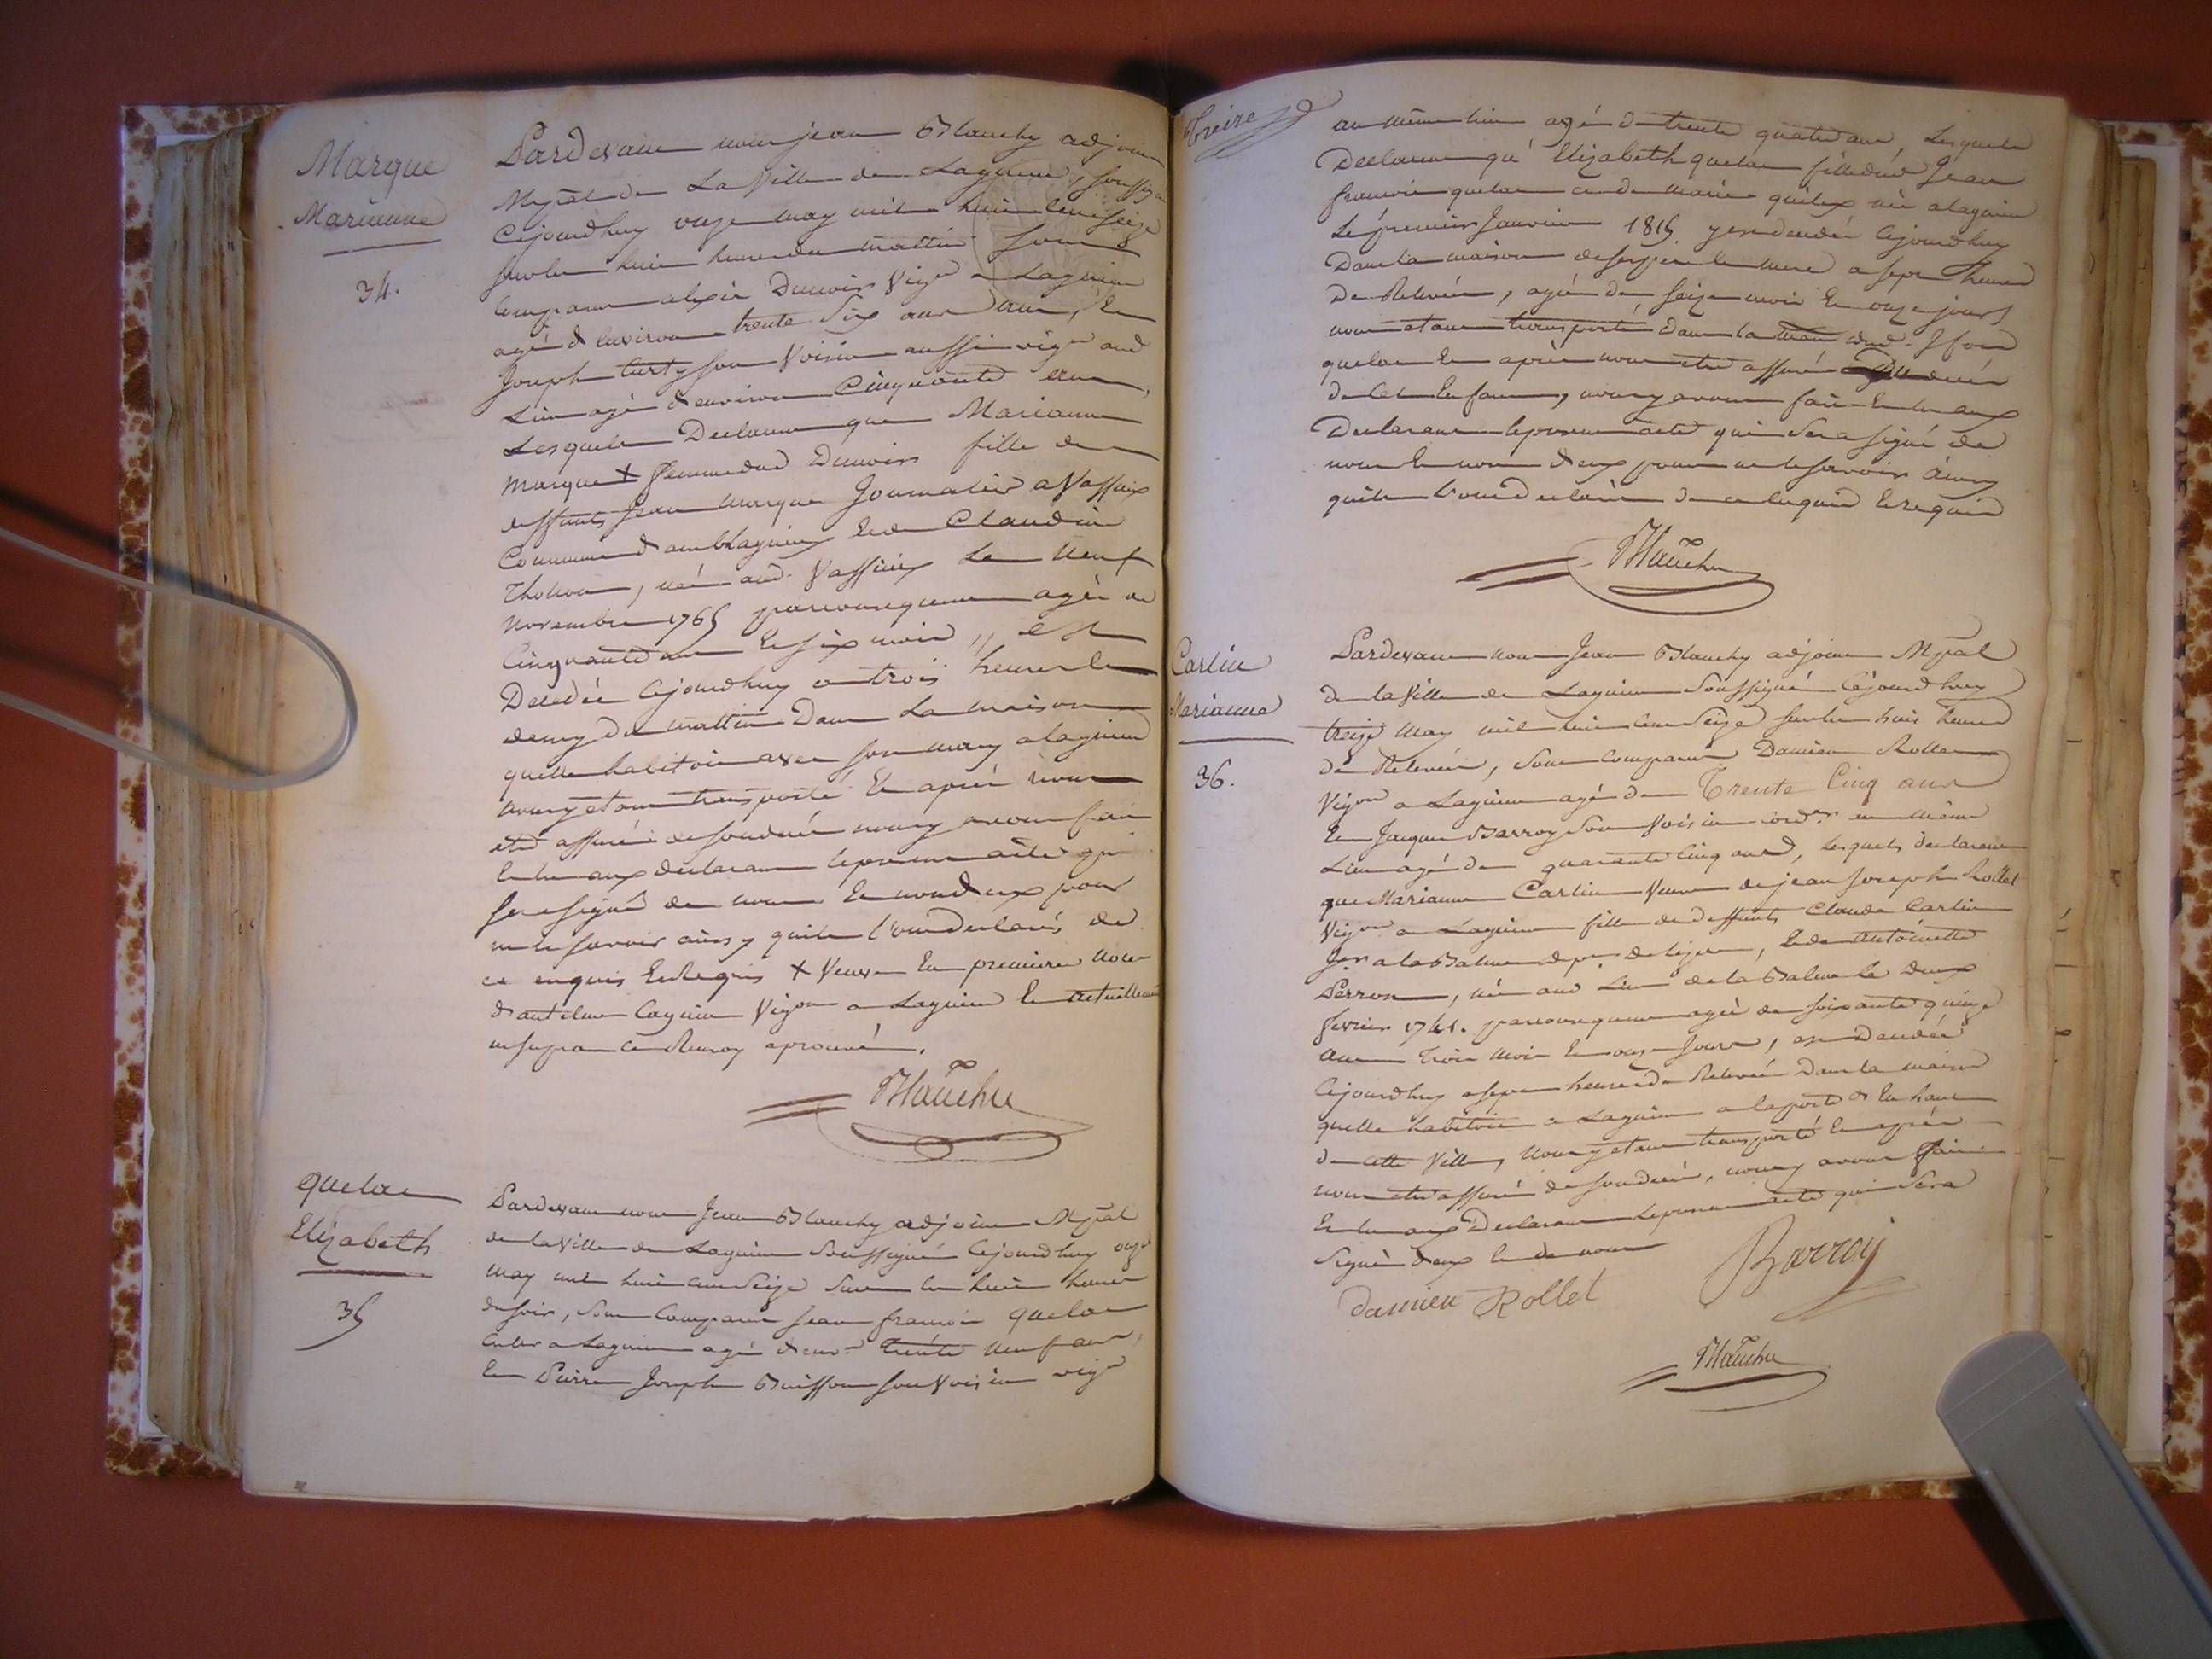 Marque
Marianne
34.
Pardevant nous jean Blanchy adjoint
Mpal de La Ville de Lagnieu, soussigné
Cejourdhuy onze may mil huit cent seize
sur les huit heures du mattin sont
Comparu alexis Dunoir Vigon a Lagnieu
agé d'environ trente six ans, Et
Joseph Curty son Voisin aussi vigon aud
Lieu agé d'environ Cinquante ans,
Lesquels Declarent que Marianne
Marque + femme dud Dunoir fille de
deffunts Jean Marque Journalier a Vassieux
Commune d'amblagnieu Et de Claudine
, née aud. Vassieux Le neuf
novembre 1765 parconsequent agée de
Cinquante ans Et six mois, est
Decedée Cejourdhuy a trois heures Et
demy du mattin Dans La maison
quelle habitoit avec son mary a lagnieu
nous y etant transporté Et après nous
etre assuré de son decès nous y avons fait
Et lu aux declarant le present acte qui
sera signé de nous Et non d'eux pour
ne le savoir ainsy quils l'ont declaré de
ce enquis Et Requis + Veuve En premiere noce
d'antelme Vigon a Lagnieu Et actuellement
ce Renvoy aprouvé.
Blanchy
quelac
Elizabeth
35
Pardevant nous Jean Blanchy adjoint Mpal
de la Ville de Lagnieu Soussigné Cejourdhuy onze
May mil huit cent Seize Sur les huit heures
du soir, Sont Comparu Jean françois quelac
a Lagnieu agé d'env.n trente neuf ans,
Et Pierre Joseph Buisson son Voisin vigon
Treize
au même lieu agé de trente quatre ans, Lesquels
Declarent qu'Elizabeth quelac fille dud Jean
françois quelac et de Marie née a lagnieu
Le premier Janvier 1815. y est decedée Cejourdhuy
Dans la maison de ses pere Et mere a sept heures
De Relevée, agée de seize mois Et onze jours
nous etant transporté Dans la maison dud. J fois
quelac Et après nous etre assuré du decés
de Cet Enfant, nous y avons fait Et lu aux
Declarans le present acte qui Sera signé de
nous Et non d'eux pour ne le savoir ainsy
quils l'ont declaré de ce Enquis Et requis
Blanchy
Carlin
Marianne
36.
Pardevant nous Jean Blanchy adjoint Mpal
de la Ville de Lagnieu Soussigné Cejourdhuy
treize May mil huit cent Seize sur les huit heures
de Relevée, Sont Comparu Damien Rollet
Vigon a Lagnieu agé de Trente Cinq ans
Et Jacques Barroy Son Voisin cord.er au même
Lieu agé de quarante Cinq ans, Lesquels declarent
que Marianne Carlin Veuve de jean Joseph Rollet
Vigon a Lagnieu fille de deffunts Claude Carlin
a la Balme Et de antoinette
Perron, née aud Lieu de la Balme Le Deux
fevrier 1741. parconsequent agée de soixante quinze
ans trois mois Et onze Jours, est Decedée
Cejourdhuy a sept heures de Relevée Dans la maison
quelle habitoit a Lagnieu a la porte d'En haut
de cette Ville, Nous y etant transporté Et après
nous etre assuré de son decés, nous y avons fait
Et lu aux Declarant le present acte qui Sera
Signé d'eux Et de nous
Barroy
Damien Rollet
Blanchy